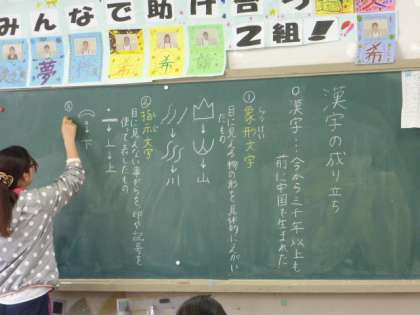 みんなで助け合う
2組!
夢
希
希
漢字の成り立ち
○漢字…今から三千年以上も
前に中国で生まれた
①象形文字
しょうけい
目に見える物の形を具体的にえがい
たもの
山
川
②指示文字
しじ
目に見えない事がらを印や記号を
使って表したもの
上
下
③